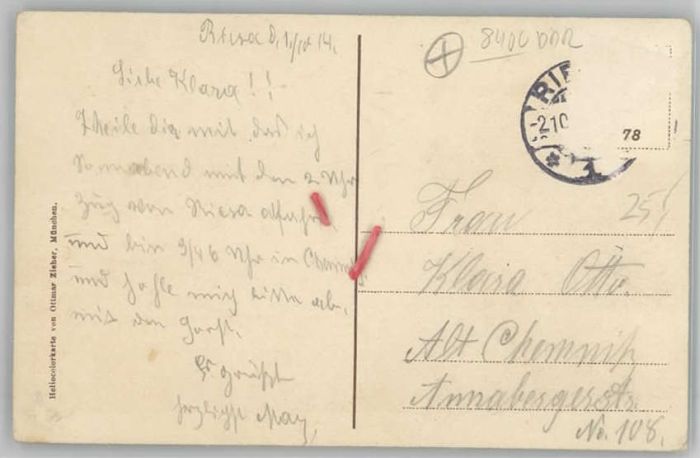 Riesa d. 1./10 14.
Liebe Klara!!
Theile dir mit das ich
Sonnabend mit den 2 Uhr
Zug von Riesa abfahre
und bin 3/4 6 Uhr in Chemnitz
und hohle mich bitte ab
mit den
Es grüßt
herzlichst Max
Heliocolorkarte von Ottmar Zieher, München.
8400 DDR
RIE
-2.10
1
78
25,
Frau
Klara Otto.
Alt Chemnitz
Annabergerstr.
No. 108.